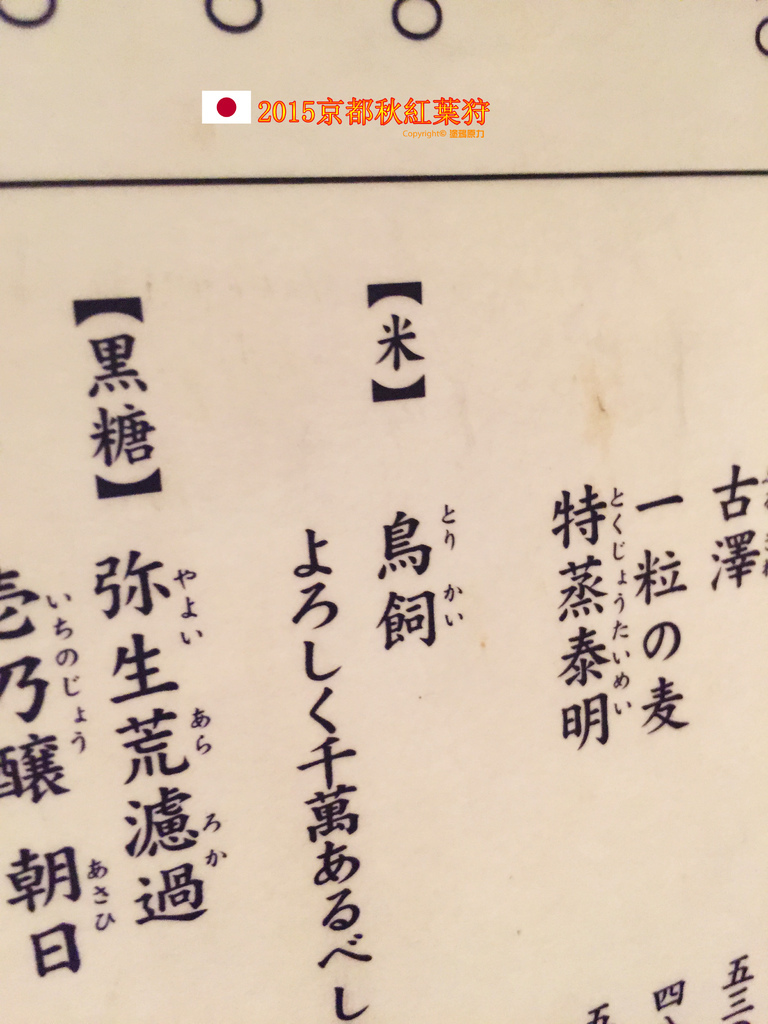 2015京都秋紅葉狩
Copyright©
古澤
一粒の麦
特蒸泰明
とくじょうたいめい
【米】
鳥飼
とり かい
よろしく千萬あるべし
【黒糖】
弥生荒濾過
やよい あら ろか
壱乃醸 朝日
いちのじょう あさひ
五三
四
五